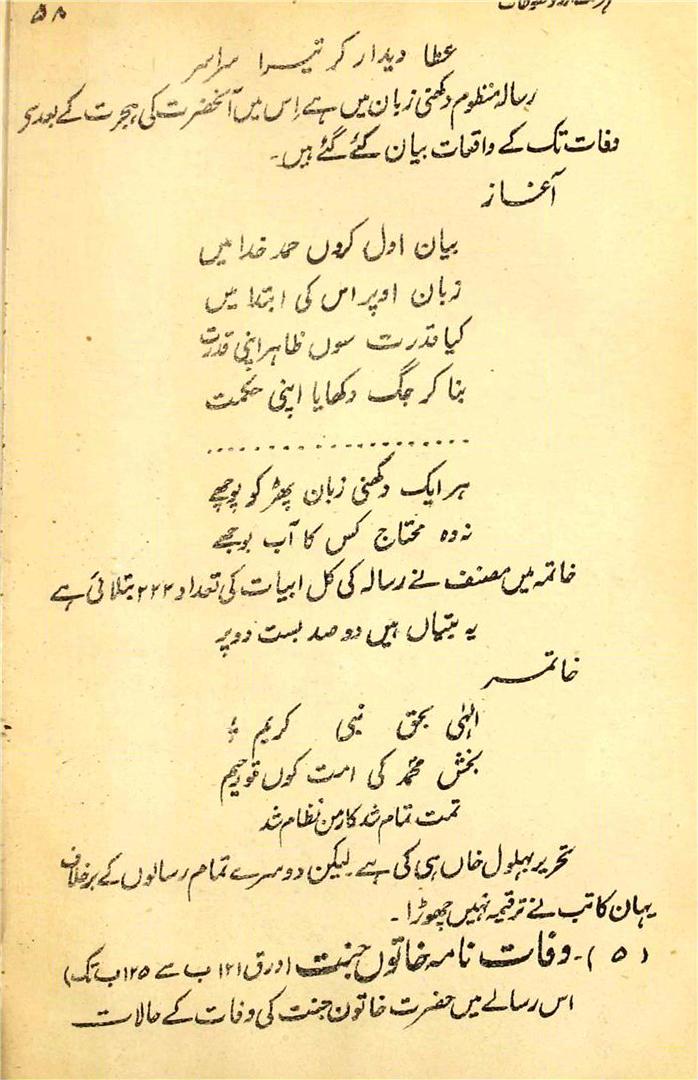 ۵۸
عطا دیدار کر تیسرا سراسر
رسالہ منظوم دکھنی زبان میں ہے اِس میں آنحضرت کی ہجرت کے بعد سے
وفات تک کے واقعات بیان کئے گئے ہیں۔
آغاز
بیان اول کروں حمد خدا میں
زبان اوپر اس کی ابتدا میں
کیا قدرت سوں ظاہر اپنی قدرت
بنا کر جگ دکھایا اپنی حکمت
......................
ہر ایک دکھنی زبان پھڑ کو پوچھے
نہ وہ محتاج کس کا آپ بوجھے
خاتمہ میں مصنف نے رسالہ کی کل ابیات کی تعداد ۲۲۲ بتلائی ہے
یہ بیتیاں ہیں دو صد بست دو پر
خاتمہ
الہٰی بحق نبی کریم ؑ
بخش محمدؐ کی امت کوں تو رحیم
تمت تمام شد کار من نظام شد
تحریر بہلول خاں ہی کی ہے لیکن دوسرے تمام رسالوں کے برخلاف
یہاں کاتب نے ترقیمہ نہیں چھوڑا۔
(۵)۔ وفات نامہ خاتون جنت (ورق ۱۲۱ ب سے ۱۲۵ ب تک)
اس رسالے میں حضرت خاتون جنت کی وفات کے حالات